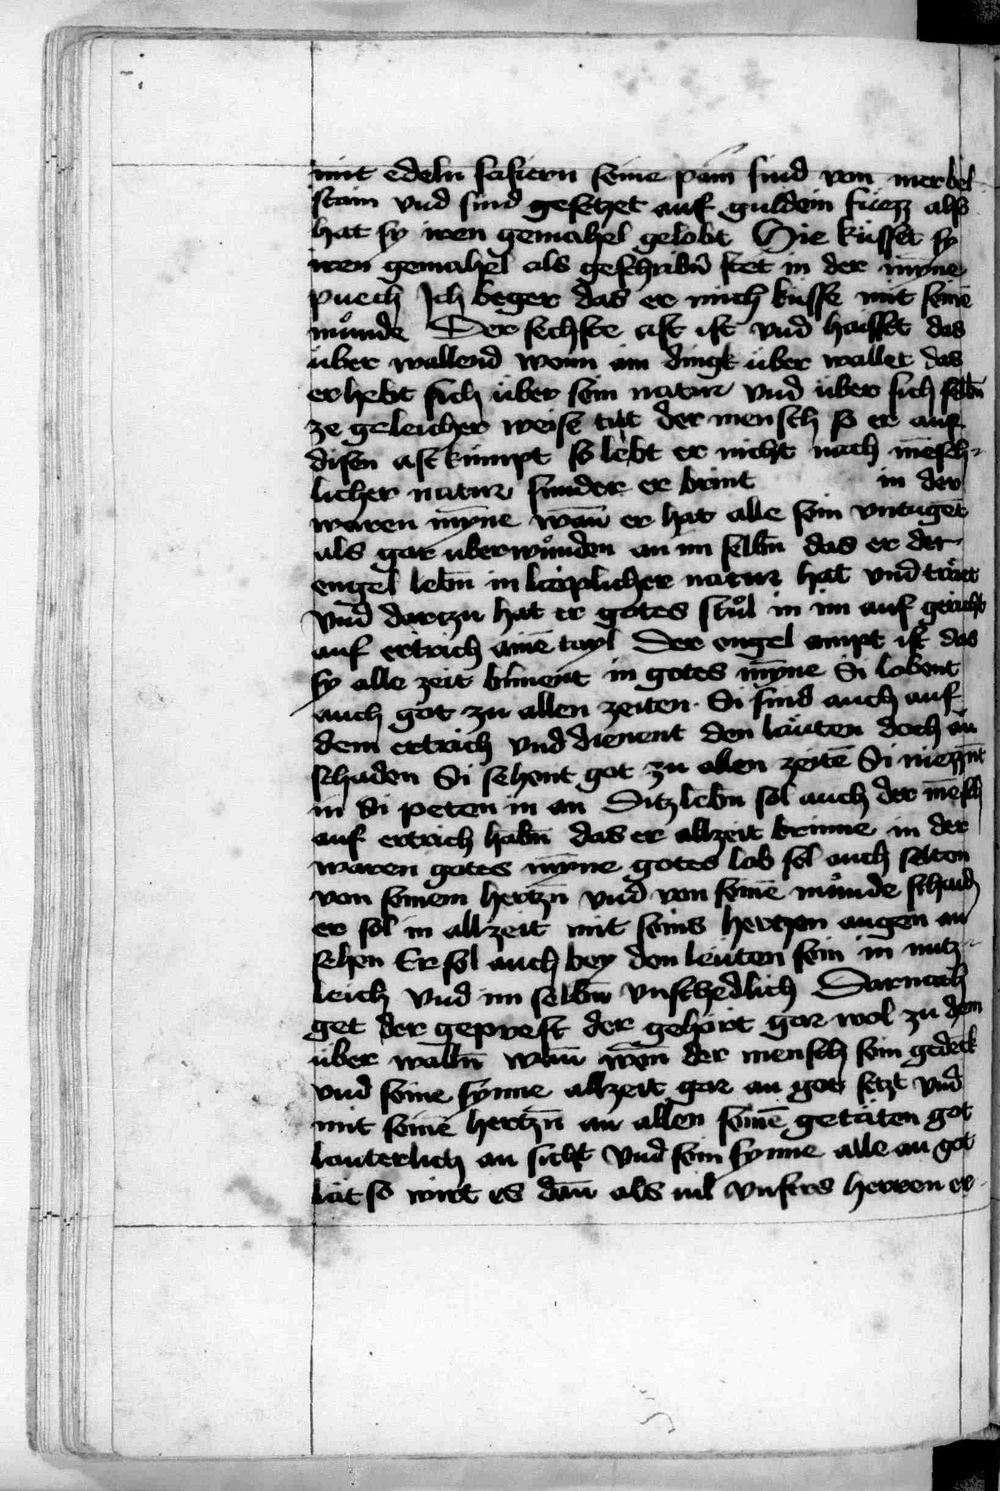 mit edeln safiern seine pain sind von merbel
stain vnd sind gesetzet auf guldein fuezz als
hat sy iren gemahel gelobt Hie küsset sy
iren gemahel als geschribn̄ stet in der myn̄e
puech Ich beger das er mich küsse mit seinē
mu̇nde Der sechste ast ist vnd haisset das
über wallend wenn ain dingk über wallet das
erhebt sich über sein natur vnd über sich selbn̄
ze geleicher weise tut der mensch so er auf
disen ast kümpt so lebt er nicht nach mēsch-
licher natur sunder er brint in der
waren myn̄e wan̄ er hat alle sein vntuget
als gar uberwu̇nden an im selbn̄ das er der
engel lebn̄ in leiplicher natur hat vnd trait
vnd dartzu hat er gotes stůl in im auf gericht
auf ertrich ainē tayl Der engel ampt ist das
sy alle zeit brinnent in gotes myn̄e Si lobent
auch got zu allen zeiten. Si sind auch auf
dem ertrich vnd dienent den läuten doch an
schaden Si sehent got zu allen zeitē Si niezzent
in Si peten in an Ditz lebn̄ sol auch der mēsch
auf ertrich habn̄ das er allzeit brinne in der
waren gotes myn̄e gotes lob sol auch selten
von seinem hertzn̄ vnd von seinē mu̇nde schaidn̄
er sol in allzeit mit seins hertzen augen an
sehen Er sol auch bey den leüten sein in nutz-
leich vnd im selbn̄ vnschedlich Darnach
get der geprest der gehört gar wol zu dem
über walln̄ wan̄ wen̄ der mensch sein gedēck
vnd seine synne allzeit gar an got setzt vnd
mit seinē hertzn̄ an allen seinē getäten got
lauterlich an sicht vnd sein synne alle an got
leit so wirt es dan̄ als uil vnsers herren er-